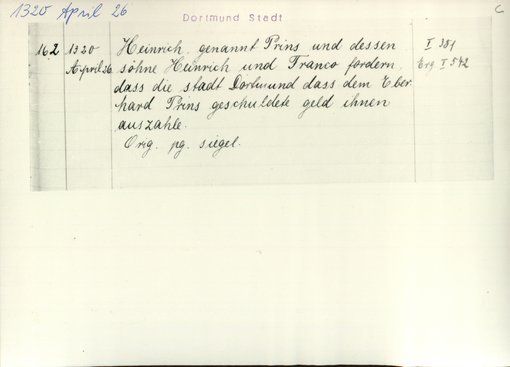 1320 April 26
Dortmund Stadt
C
162 1320 Heinrich, genannt Prins und dessen I 381
April 26 söhne Heinrich und Franco fordern, Erg I 572
dass die stadt Dortmund dass dem Eber
hard Prins geschuldete geld ihnen
auszahle.
Orig. pg. siegel.